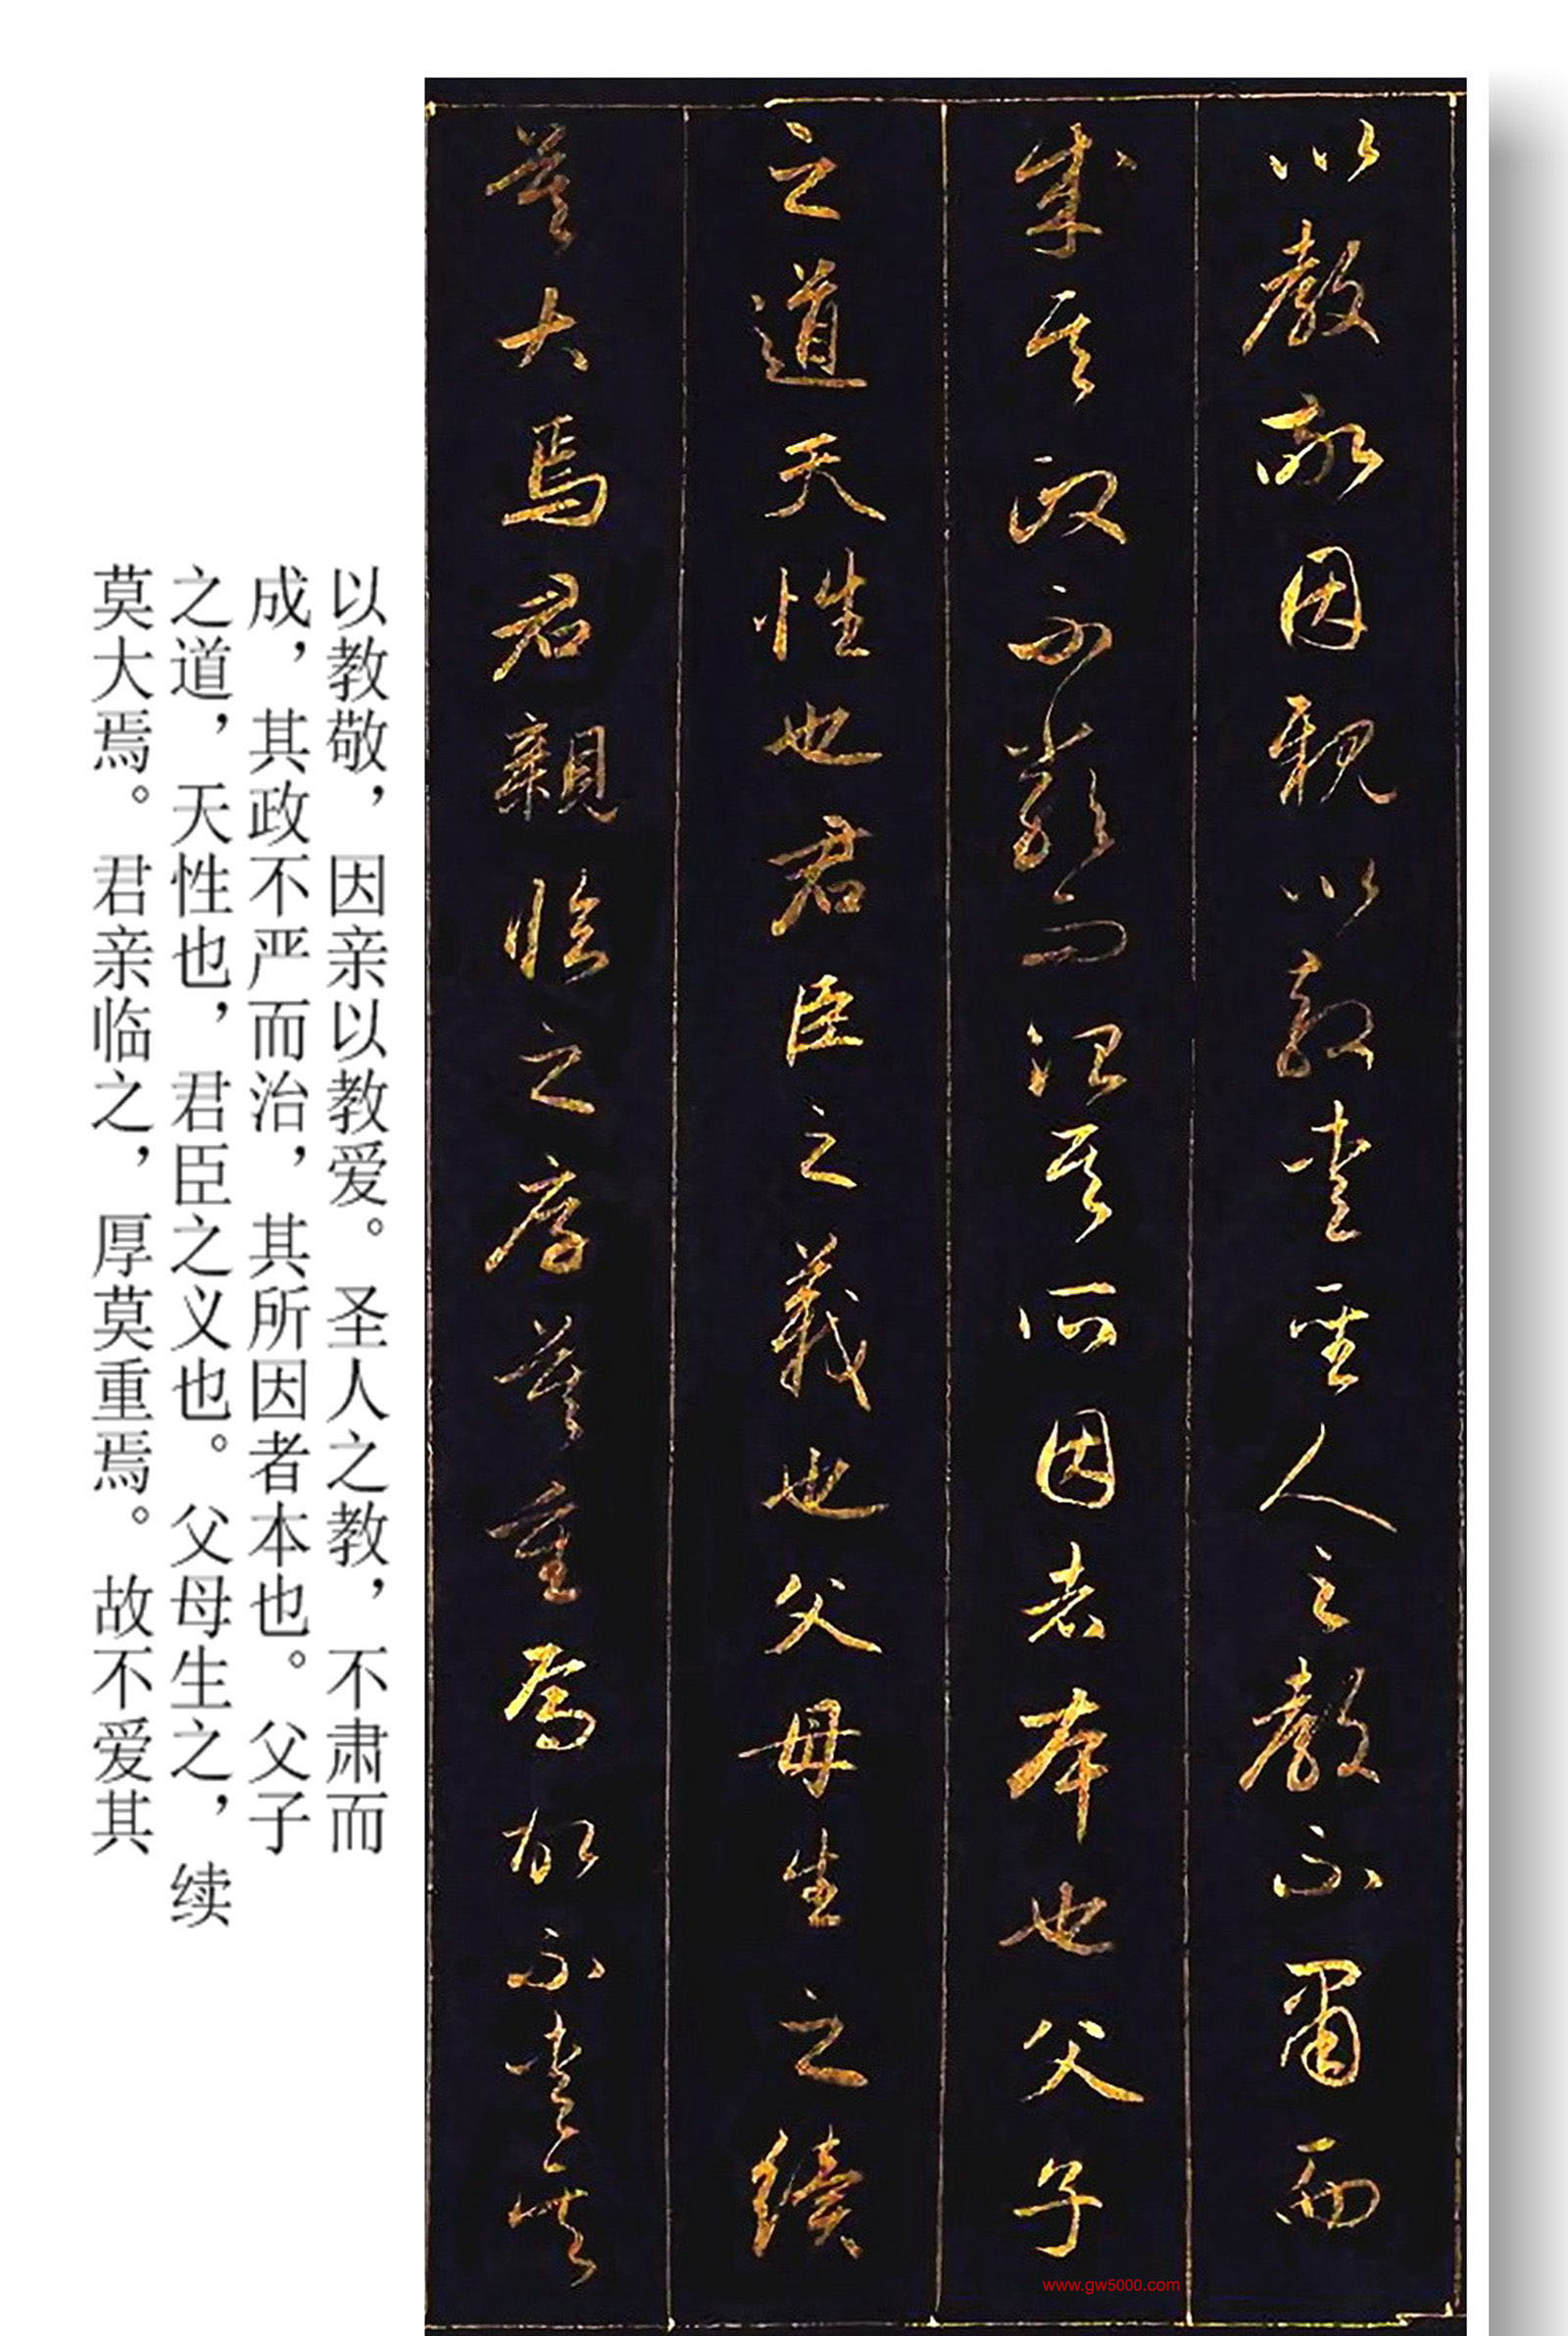 以教敬因親以教愛聖人之教不肅而
成其政不嚴而治其所因者本也父子
之道天性也君臣之義也父母生之續
莫大焉君親臨之厚莫重焉故不愛其
以教敬，因亲以教爱。圣人之教，不肃而
成，其政不严而治，其所因者本也。父子
之道，天性也，君臣之义也。父母生之，续
莫大焉。君亲临之，厚莫重焉。故不爱其
www.gw5000.com